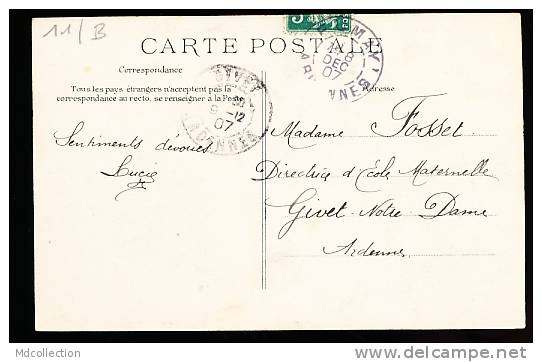 11/B
CARTE POSTALE
Correspondance
Tous les pays étrangers n'acceptent pas la
correspondance au recto, se renseigner à la Poste
Adresse
GIVET
9 -12
07
ARDENNES
8
DEC
07
Sentiments dévoués
Lucie
Madame Fosset
Directrice d'Ecole Maternelle
Givet-Notre Dame
Ardennes
Mdcollection
http://www.delcampe.net